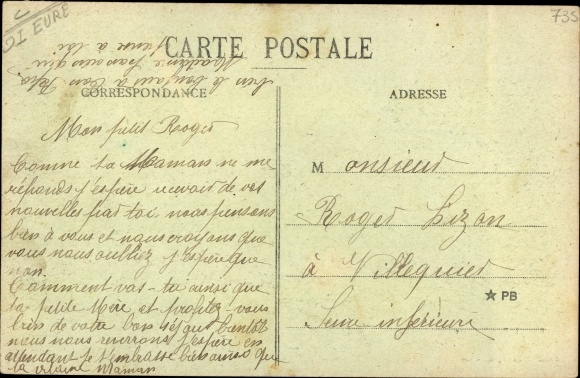 DI EURE
735
CARTE POSTALE
CORRESPONDANCE
ADRESSE
Mon petit Roger
Comme ta Maman ne me
réponds j'espère recevoir de vos
nouvelles par toi. nous pensons
bien à vous et nous croyons que
vous nous oubliez j'espère que
non.
Comment vas-tu ainsi que
ta petite Mère et profitez-vous
bien de votre bon séjour, bientôt
nous nous reverrons j'espère en
attendant je t'embrasse bien ainsi que
ta Maman
bien le bonjour à ton Papa.
Madame
pense à toi
Monsieur
Roger Lizon
à Villequier
Seine inférieure
★ PB